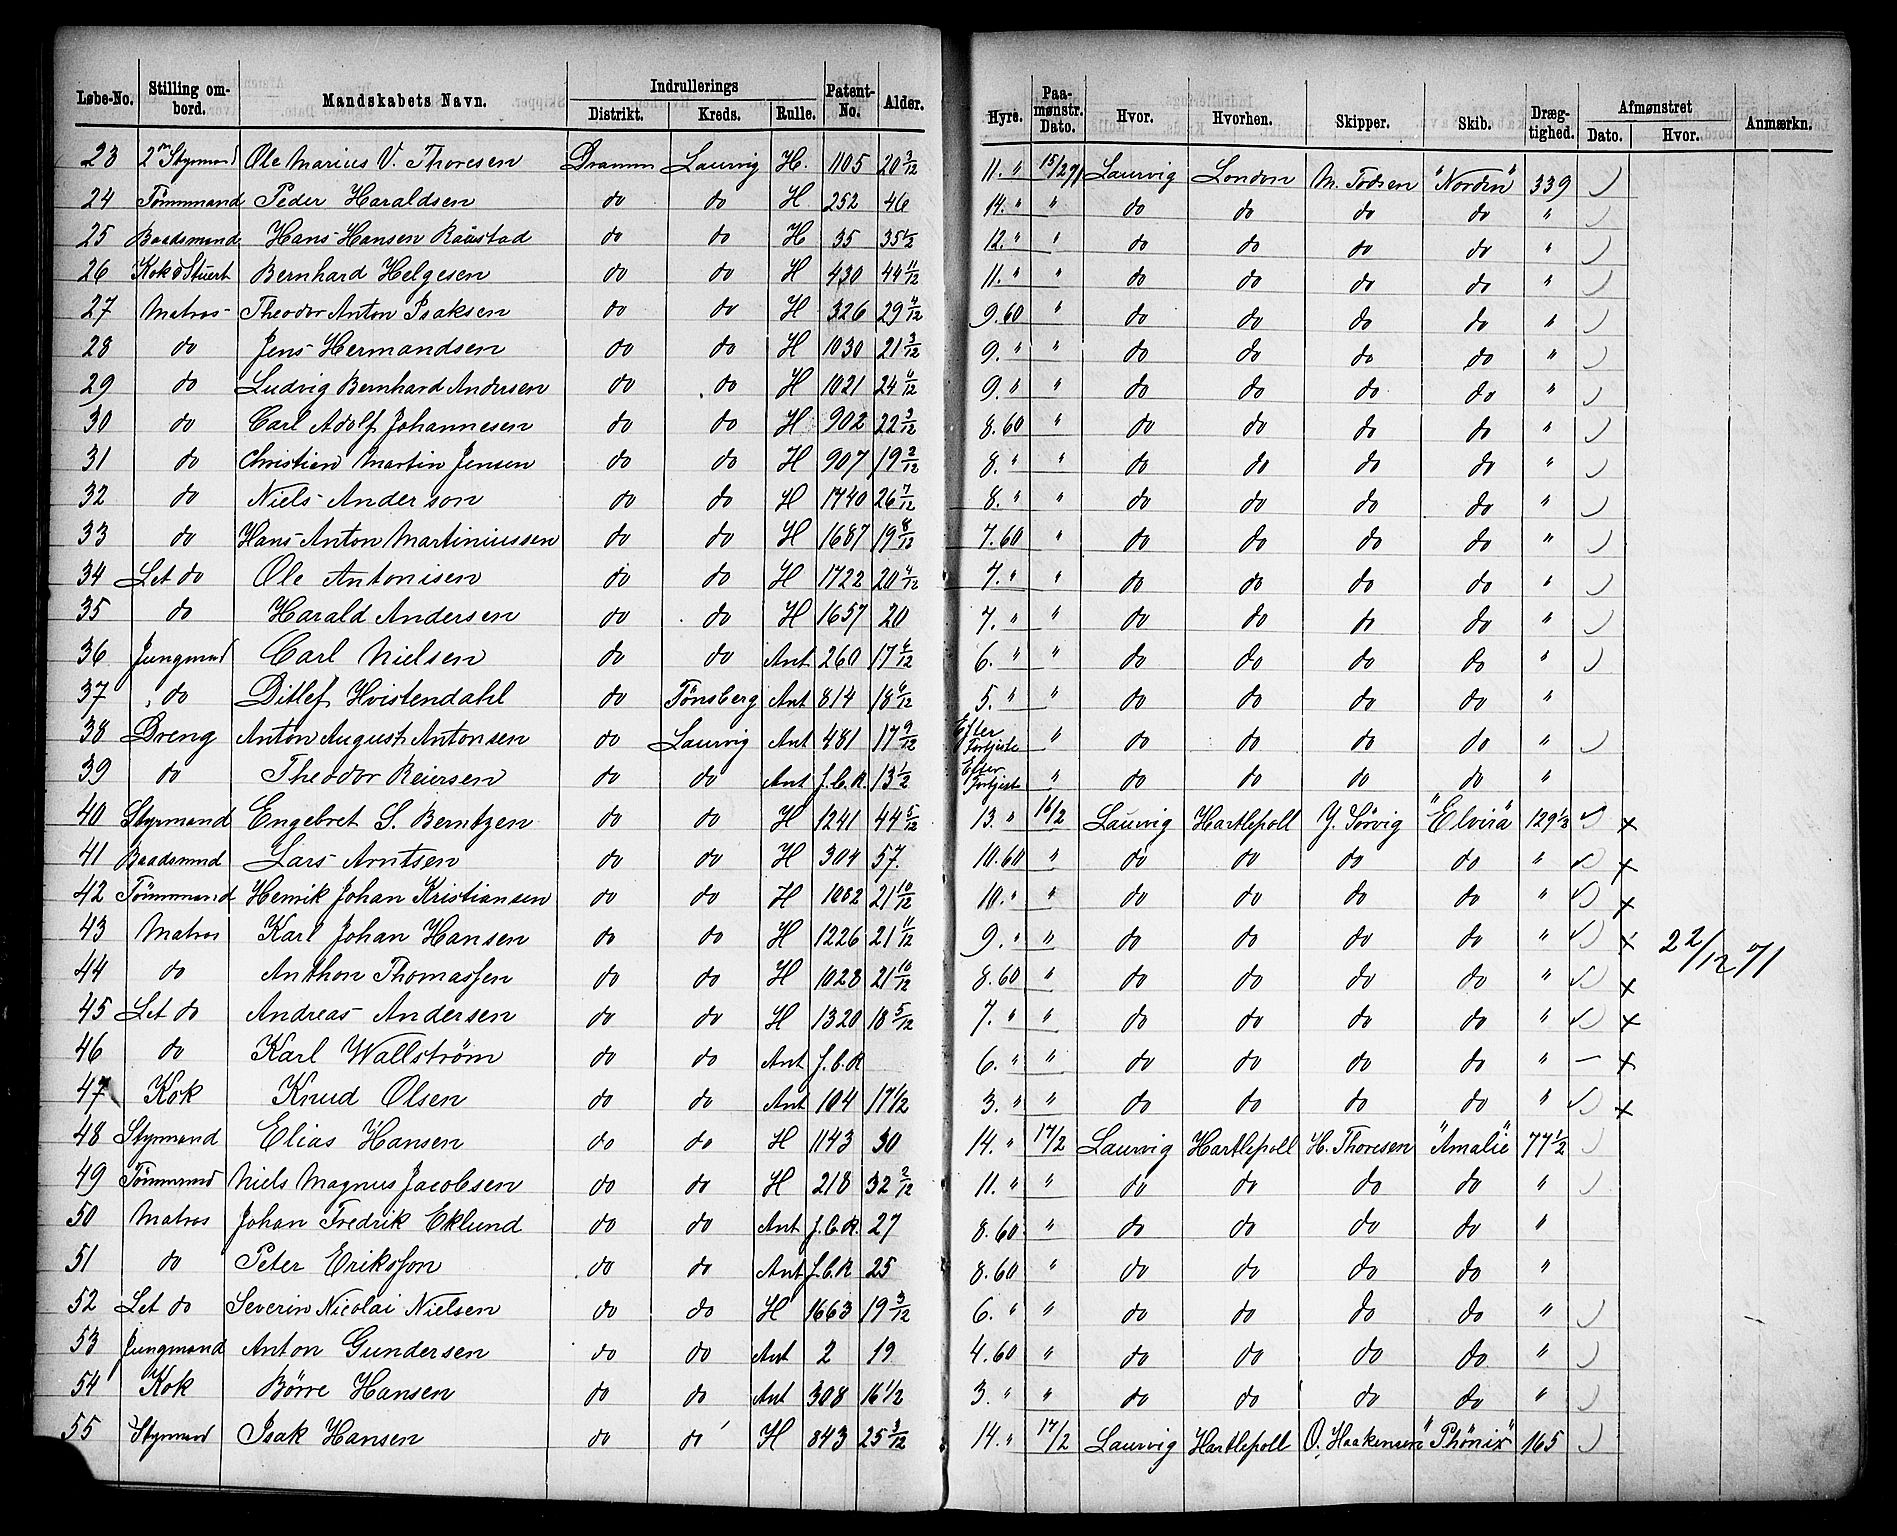 Løbe-No. Stilling ombord. Mandskabets Navn. Indrullerings Distrikt. Kreds. Rulle. Patent-No. Alder. Hyre. Paamønstr. Dato. Hvor. Hvorhen. Skipper. Skib. Drægtighed. Afmønstret Dato. Hvor. Anmærkn.
23 2n Styrmand Ole Marius V. Thoresen Dramm Laurvig H. 1105 20 3/12 11. " 15/2 71 Laurvig London M. Todsen "Norden" 339
24 Tømmmand Peder Haraldsen do do H 252 46 14. " " do do do do "
25 Baadsmand Hans Hansen Raastad do do H 35 35 1/2 12. " " do do do do "
26 Kok & Stuert Bernhard Helgesen do do H 430 44 11/12 11. " " do do do do "
27 Matros Theodor Anton Isaksen do do H 326 29 4/12 9.60 " do do do do "
28 do Jens Hermandsen do do H 1030 21 3/12 9. " " do do do do "
29 do Ludvig Bernhard Andersen do do H 1021 24 11/12 9. " " do do do do "
30 do Carl Adolf Johannesen do do H 902 22 3/12 8.60 " do do do do "
31 do Christian Martin Jensen do do H 907 19 2/12 8. " " do do do do "
32 do Niels Anderson do do H 1740 26 7/12 8. " " do do do do "
33 do Hans Anton Martiniussen do do H 1687 19 8/12 7.60 " do do do do "
34 Let do Ole Antonisen do do H 1722 20 4/12 7. " " do do do do "
35 do Harald Andersen do do H 1657 20 7. " " do do do do "
36 Jungmand Carl Nielsen do do Ant 260 17 6/12 6. " " do do do do "
37 do Ditlef Hvistendahl do Tønsberg Ant 814 18 6/12 5. " " do do do do "
38 Dreng Anton August Antonsen do Laurvig Ant 481 17 9/12 Efter Fortjeste " do do do do "
39 do Theodor Reiersen do do Ant f.C.R. 13 1/2 Efter Fortjest " do do do do "
40 Styrmand Engebret S. Berntzen do do H 1241 44 5/12 13. " 16/2 Laurvig Hartlepoll Y. Sørvig "Elvira" 129 1/2 x
41 Baadsmnd Lars Arntsen do do H 304 57. 10.60 " do do do do " x
42 Tømmmand Henrik Johan Kristiansen do do H 1082 21 10/12 10. " " do do do do " x
43 Matros Karl Johan Hansen do do H 1226 21 11/12 9. " " do do do do " x 22/12 71
44 do Anthon Thomassen do do H 1028 21 10/12 8.60 " do do do do " x
45 Let do Andreas Andersen do do H 1320 18 5/12 7. " " do do do do " x
46 do Karl Wallstrøm do do Ant f.C.R 6. " " do do do do " – x
47 Kok Knud Olsen do do Ant 104 17 1/2 3. " " do do do do " x
48 Styrmand Elias Hansen do do H 1143 30 14. " 17/2 Laurvig Hartlepoll H. Thoresen "Amalie" 77 1/2
49 Tømmmnd Niels Magnus Jacobsen do do H 218 32 2/12 11. " " do do do do "
50 Matros Johan Fredrik Eklund do do Ant f.C.R. 27 8.60 " do do do do "
51 do Peter Eriksson do do Ant f.C.R 25 8.60 " do do do do "
52 Let do Severin Nicolai Nielsen do do H 1663 19 3/12 6. " " do do do do "
53 Jungmand Anton Gundersen do do Ant 2 19 4.60 " do do do do "
54 Kok Børre Hansen do do Ant 308 16 1/2 3. " " do do do do "
55 Styrmand Isak Hansen do do H 843 25 3/12 14. " 17/2 Laurvig Hartlepoll O. Haakensen "Phønix" 165